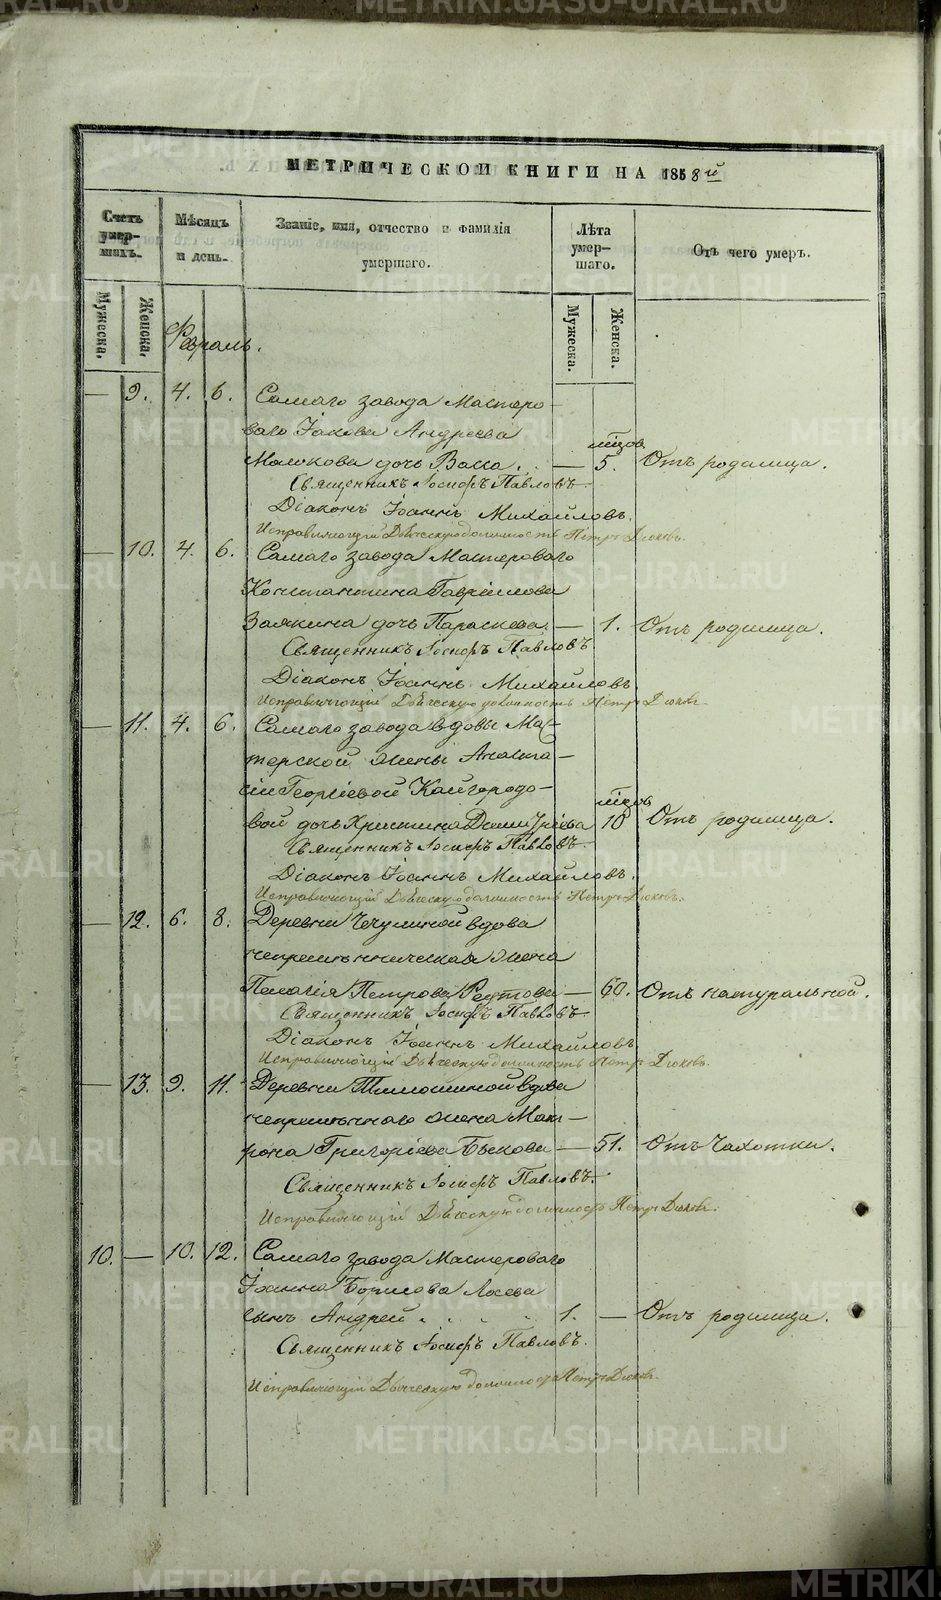 МЕТРИЧЕСКОЙ КНИГИ НА 1858й
Счетъ умер- шихъ.
Мѣсяцъ и день.
Званіе, имя, отчество и фамилія умершаго.
Лѣта умер- шаго.
Отъ чего умеръ.
Мужеска. Женска.
Мужеска. Женска.
Февраль.
— 9. 4. 6. Самаго завода Мастеро-
ваго Іакова Андреева
Молокова дочь Васса. — мцовъ 5. Отъ родимца.
Священникъ Іосифъ Павловъ
Діаконъ Іоаннъ Михайловъ.
Исправляющій Дьяческую должность Петръ Дюковъ.
— 10. 4. 6. Самаго завода Мастероваго
Константина Гавріилова
Заякина дочь Параскева. — 1. Отъ родимца.
Священникъ Іосифъ Павловъ
Діаконъ Іоаннъ Михайловъ
Исправляющій Дьяческую должность Петръ Дюковъ.
— 11. 4. 6. Самаго завода вдовы Мас-
терской жены Анаста-
сіи Георгіевой Кайгородо-
вой дочь Христина Димитріева мцовъ 10 Отъ родимца.
Священникъ Іосифъ Павловъ
Діаконъ Іоаннъ Михайловъ.
Исправляющій Дьяческую должность Петръ Дюковъ.
— 12. 6. 8. Деревни вдова
жена
Пелагія Петрова — 60. Отъ натуральной.
Священникъ Іосифъ Павловъ
Діаконъ Іоаннъ Михайловъ
Исправляющій Дьяческую должность Петръ Дюковъ.
— 13. 9. 11. Деревни вдова
жена Мат-
рона Григорьева Быкова — 51. Отъ Чахотки.
Священникъ Іосифъ Павловъ.
Исправляющій Дьяческую должность Петръ Дюковъ.
10. — 10. 12. Самаго завода Мастероваго
Іоанна Борисова Лосева
сынъ Андрей 1. — Отъ родимца.
Священникъ Іосифъ Павловъ.
Исправляющій Дьяческую должность Петръ Дюковъ.
METRIKI.GASO-URAL.RU